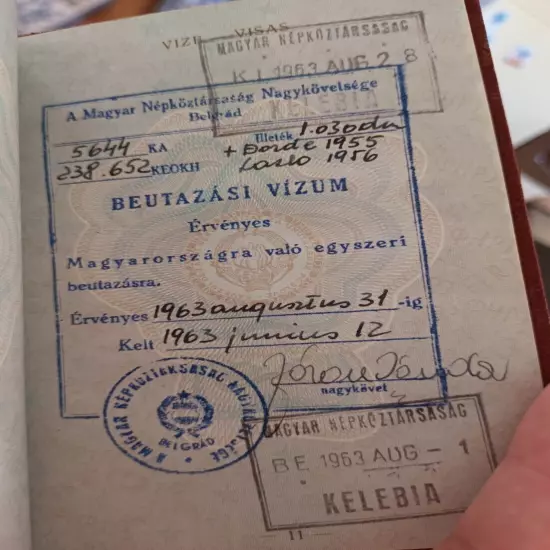 VIZE VISAS
MAGYAR NÉPKÖZTÁRSASÁG
KI 1963 AUG 2 8
KELEBIA
A Magyar Népköztársaság Nagykövetsége
Belgrád
5644 KA Illeték 1.030 din
238.652 KEOKH + Đorđe 1955
Laslo 1956
BEUTAZÁSI VÍZUM
Érvényes
Magyarországra való egyszeri
beutazásra.
Érvényes 1963 augusztus 31 -ig
Kelt 1963 junius 12
nagykövet
A MAGYAR NÉPKÖZTÁRSASÁG NAGYKÖVETSÉGE
BELGRÁD
MAGYAR NÉPKÖZTÁRSASÁG
BE 1963 AUG - 1
KELEBIA
11